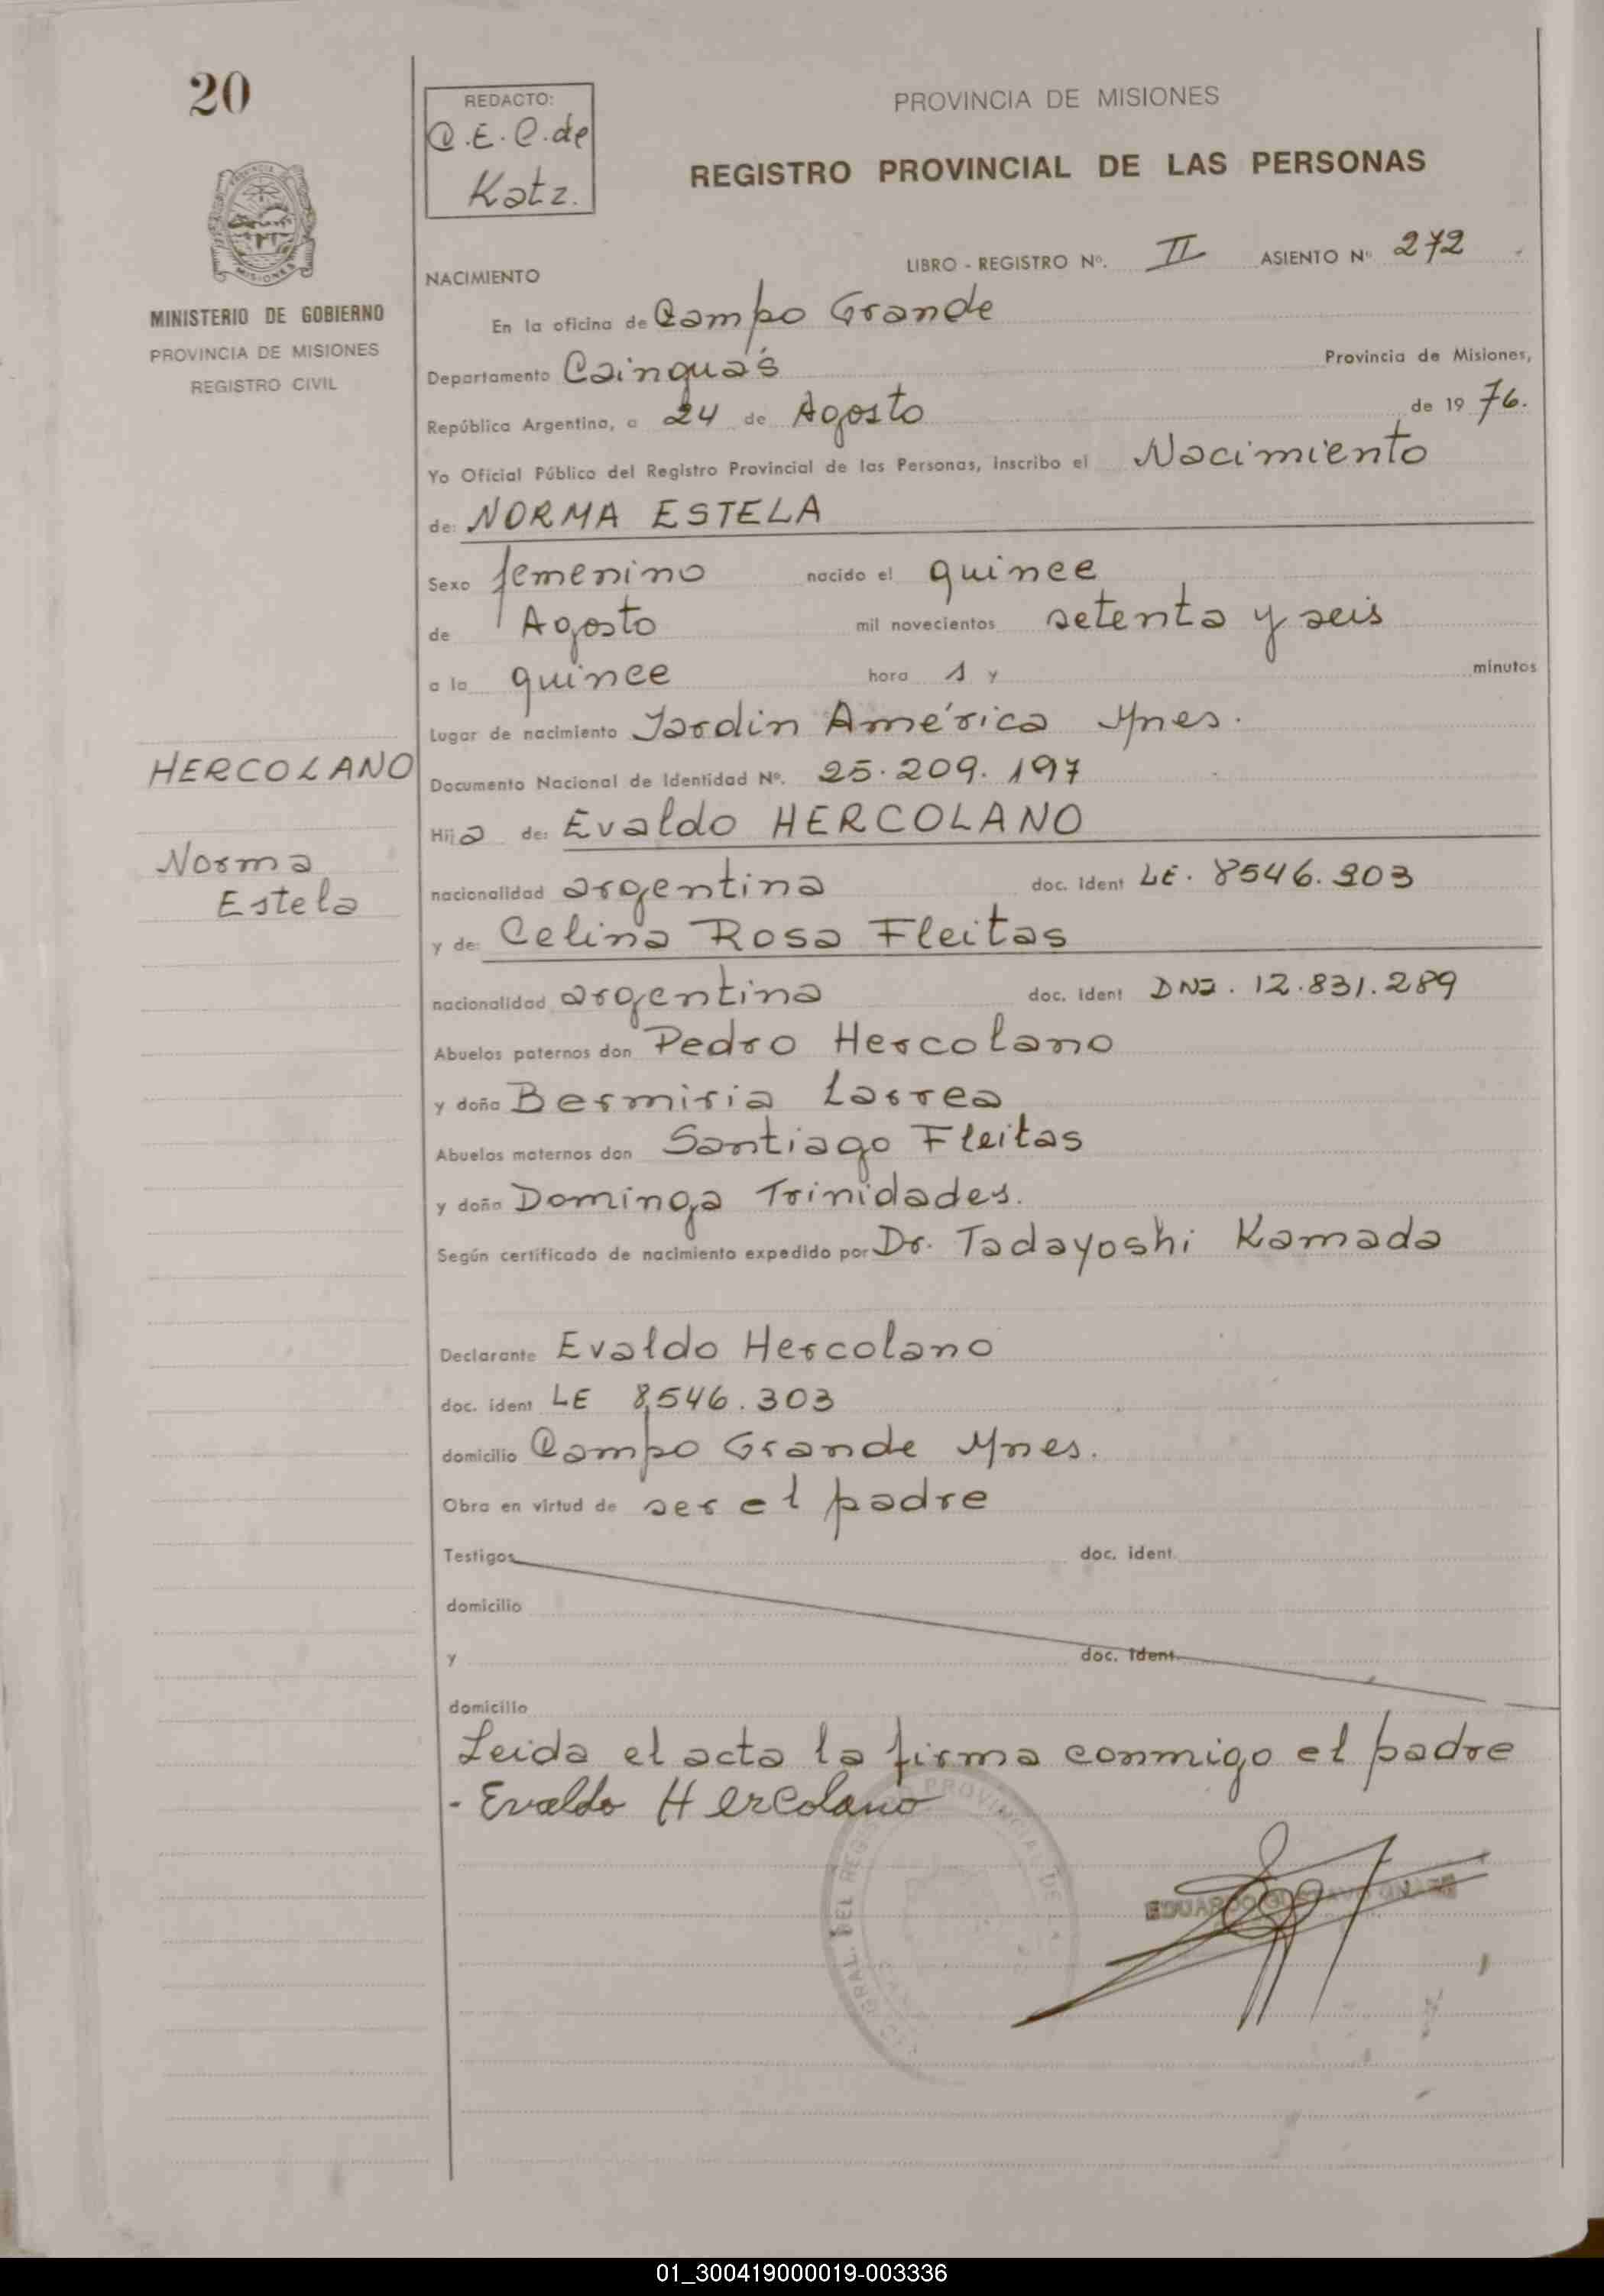 20
REDACTO:
C.E.C. de
Katz.
PROVINCIA DE MISIONES
REGISTRO PROVINCIAL DE LAS PERSONAS
MISIONES
MINISTERIO DE GOBIERNO
PROVINCIA DE MISIONES
REGISTRO CIVIL
LIBRO - REGISTRO Nº. II ASIENTO Nº 272
NACIMIENTO
En la oficina de Campo Grande
Departamento Cainguás Provincia de Misiones,
República Argentina, a 24 de Agosto de 1976.
Yo Oficial Público del Registro Provincial de las Personas, inscribo el Nacimiento
de: NORMA ESTELA
Sexo femenino nacido el quince
de Agosto mil novecientos setenta y seis
a la quince hora s y minutos
Lugar de nacimiento Jardin América Mnes.
HERCOLANO
Documento Nacional de Identidad Nº. 25.209.197
Hija de: Evaldo HERCOLANO
Norma
Estela
nacionalidad argentina doc. ident LE. 8546.303
y de: Celina Rosa Fleitas
nacionalidad argentina doc. ident DNI. 12.831.289
Abuelos paternos don Pedro Hercolano
y doña Bermiria Larrea
Abuelos maternos don Santiago Fleitas
y doña Dominga Trinidades.
Según certificado de nacimiento expedido por Dr. Tadayoshi Kamada
Declarante Evaldo Hercolano
doc. ident LE 8.546.303
domicilio Campo Grande Mnes.
Obra en virtud de ser el padre
Testigos doc. ident.
domicilio
y doc. ident.
domicilio
Leida el acta la firma conmigo el padre
- Evaldo Hercolano
GRAL. DEL REGISTRO PROVINCIAL DE
EDUARDO GUSTAVO
01_300419000019-003336